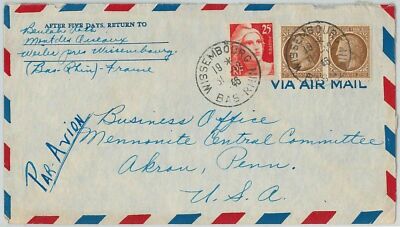 AFTER FIVE DAYS, RETURN TO
Beulah Roth
Mont des Oiseaux
Weiler près Wissembourg
(Bas-Rhin) - France
25
WISSEMBOURG
BAS RHIN
VIA AIR MAIL
PAR AVION
Business Office
Mennonite Central Committee
Akron, Penn.
U.S.A.